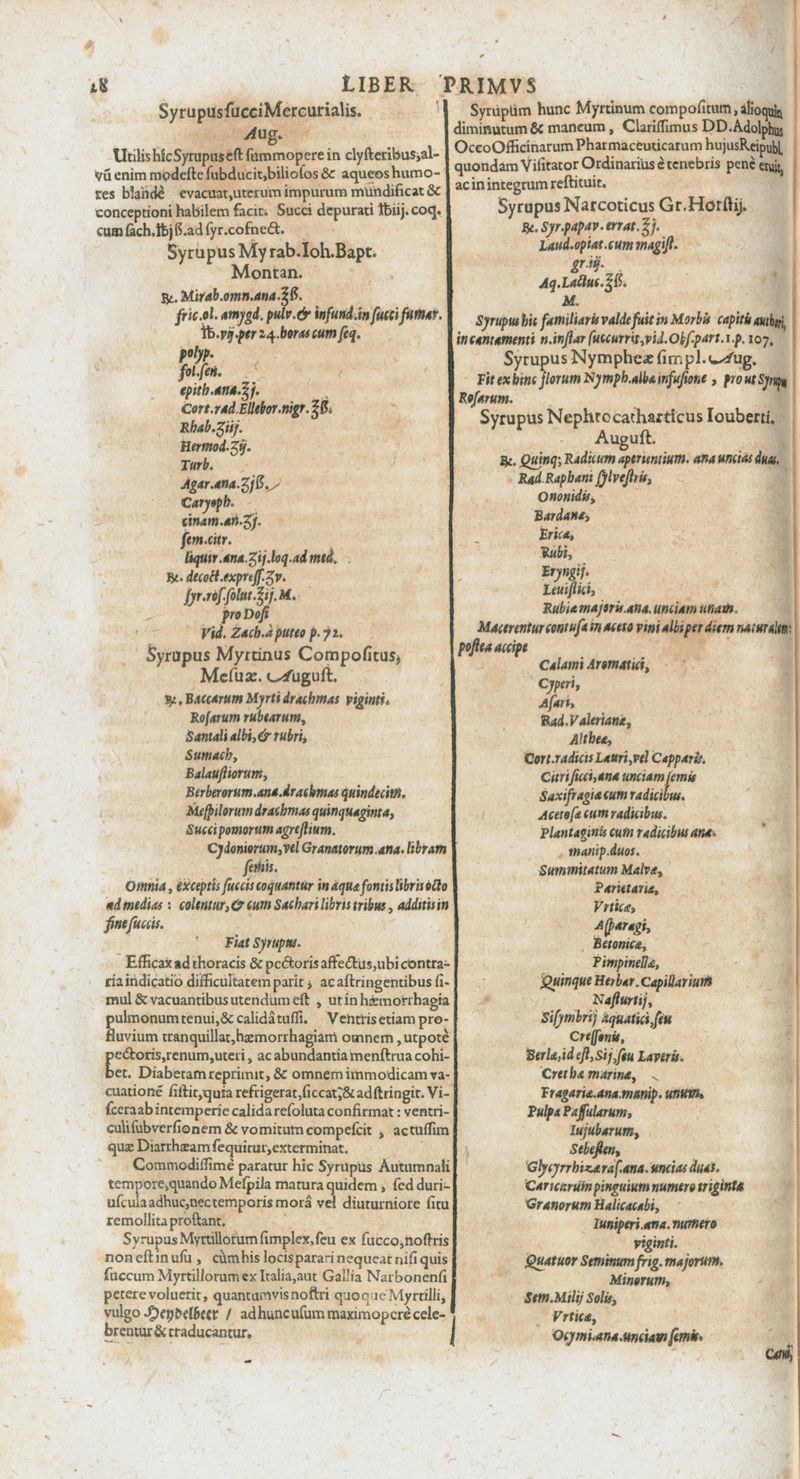 18 LIBER PRIMVS
Syrupus succi Mercurialis.
Aug.
Utilis hîc Syrupus est summopere in clysteribus, al-
vũ enim modeste subducit, biliosos & aqueos humo-
res blandè evacuat, uterum impurum mundificat &
conceptioni habilem facit. Succi depurati ℔iij. coq.
cum sach. ℔jß. ad syr. cosnect.
Syrupus Myrab. Ioh. Bapt.
Montan.
℞. Mirab. omn. ana. ʒß.
fric. ol. amygd. pulv. & infund. in succi fumar.
℔. vij. per 24. horas cum seq.
polyp.
fol. sen.
epith. ana. ℥j.
Cort. rad. Ellebor. nigr. ℥ß.
Rhab. ʒiij.
Hermod. ʒij.
Turb.
Agar. ana. ʒjß.
Caryoph.
cinam. an. ʒj.
sem. citr.
liquir. ana. ʒij. loq. ad med.
℞. decoct. express. ʒv.
syr. ros. solut. ℥ij. M.
pro Dosi
Vid. Zach. à puteo p. 72.
Syrupus Myrtinus Compositus,
Mesuæ. August.
℞. Baccarum Myrti drachmas viginti.
Rosarum rubearum,
Santali albi, & rubri,
Sumach,
Balaustiorum,
Berberorum. ana. drachmas quindecim.
Mespilorum drachmas quinquaginta,
Succi pomorum agrestium.
Cydoniorum, vel Granatorum. ana. libram
semis.
Omnia, exceptis succis coquantur in aqua fontis libris octo
ad medias : colentur, & cum Sachari libris tribus, additis in
fine succis.
Fiat Syrupus.
Efficax ad thoracis & pectoris affectus, ubi contra-
ria indicatio difficultatem parit, ac astringentibus si-
mul & vacuantibus utendum est , ut in hæmorrhagia
pulmonum tenui, & calidâ tussi. Ventris etiam pro-
fluvium tranquillat, hæmorrhagiam omnem, utpotè
pectoris, renum, uteri, ac abundantia menstrua cohi-
bet. Diabetam reprimit, & omnem immodicam va-
cuationẽ sistit, quia refrigerat, siccat, & adstringit. Vi-
scera ab intemperie calida resoluta confirmat : ventri-
culi subversionem & vomitum compescit , ac tussim
quæ Diarrhæam sequitur, exterminat.
Commodissimè paratur hîc Syrupus Autumnali
tempore, quando Mespila matura quidem, sed duri-
uscula adhuc, nec temporis morâ vel diuturniore situ
remollita prostant.
Syrupus Myrtillorum simplex, seu ex succo, nostris
non est in usu , cùm his locis parari nequeat nisi quis
succum Myrtillorum ex Italia, aut Gallia Narbonensi
petere voluerit, quantumvis nostri quoque Myrtilli,
vulgo Heydelbeer / ad hunc usum maximoperè cele-
brentur & traducantur.
Syrupum hunc Myrtinum compositum, alioquin
diminutum & mancum, Clarissimus DD. Adolphus
Occo Officinarum Pharmaceuticarum hujus Reipubl.
quondam Visitator Ordinarius è tenebris penè eruit,
ac in integrum restituit.
Syrupus Narcoticus Gr. Horstij.
℞. Syr. papav. errat. ℥j.
Laud. opiat. cum magist.
gr. iij.
Aq. Lactuc. ℥ß.
M.
Syrupus hic familiaris valde fuit in Morbis capitis authori,
incantamenti n. instar succurrit, vid. Obs. part. 1. p. 107.
Syrupus Nympheæ simpl. Aug.
Fit ex hinc florum Nymph. alba infusione , pro ut Syrupus
Rosarum.
Syrupus Nephrocatharticus Iouberti.
August.
℞. Quinq; Radicum aperientium. ana uncias duas.
Rad. Raphani sylvestris,
Ononidis,
Bardanæ,
Ericæ,
Rubi,
Eryngij.
Leuistici,
Rubiæ majoris. ana. unciam unam.
Macerentur contusa in aceto vini albi per diem naturalem:
postea accipe
Calami Aromatici,
Cyperi,
Asari,
Rad. Valerianæ,
Altheæ,
Cort. radicis Lauri, vel Capparis.
Citri sicci, ana unciam semis
Saxifragiæ cum radicibus.
Acetosæ cum radicibus.
Plantaginis cum radicibus ana.
manip. duos.
Summitatum Malvæ,
Parietariæ,
Vrticæ,
Asparagi,
Betonicæ,
Pimpinellæ,
Quinque Herbar. Capillarium
Nasturtij,
Sisymbrij aquatici, seu
Cressonis,
Berlæ, id est, Sij, seu Laveris.
Crethæ marinæ,
Fragariæ. ana. manip. unum.
Pulpæ Passularum,
Iujubarum,
Sebesten,
Glycyrrhizæ ras. ana. uncias duas.
Caricarum pinguium numero triginta
Granorum Halicacabi,
Iuniperi. ana. numero
viginti.
Quatuor Seminum frig. majorum.
Minorum,
Sem. Milij Solis,
Vrticæ,
Ocymi. ana. unciam semis.